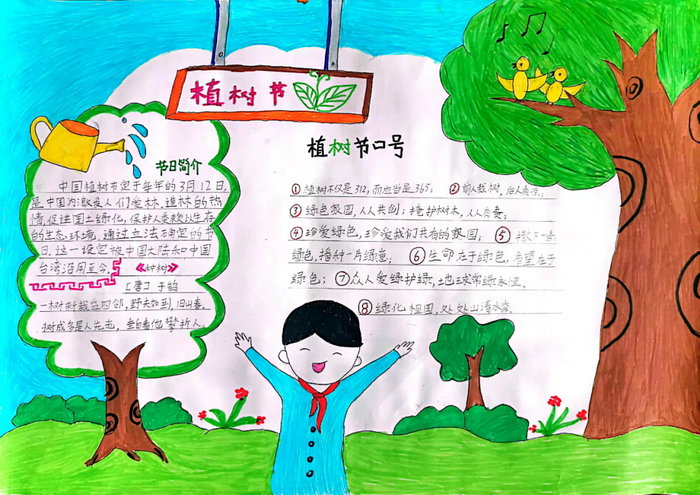 植树节
节日简介
中国植树节定于每年的3月12日,
是中国为激发人们爱林、造林的热
情,促进国土绿化,保护人类赖以生存
的生态环境,通过立法确定的节
日。这一设定被中国大陆和中国
台湾沿用至今。《村树》
[唐]于鹄
一树新栽益四邻,野夫如到旧山春。
树成多是人先老,垂白看他攀折人。
植树节口号
①植树不仅是312,而应当是365;②前人栽树,后人乘凉。
③绿色家园,人人共创;掩护树木,人人有责;
④珍爱绿色,珍爱我们共有的家园;⑤
绿色,播种一片绿意;⑥生命在于绿色,希望在于
绿色;⑦众人爱绿护绿,地球常绿永恒。
⑧绿化祖国,处处山清水秀。